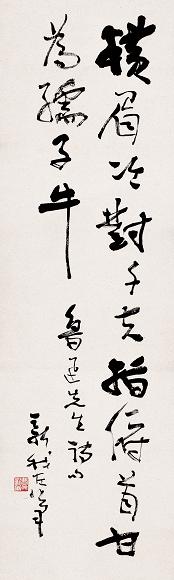 横眉冷對千夫指俯首甘
為孺子牛 魯迅先生詩句
新我左筆